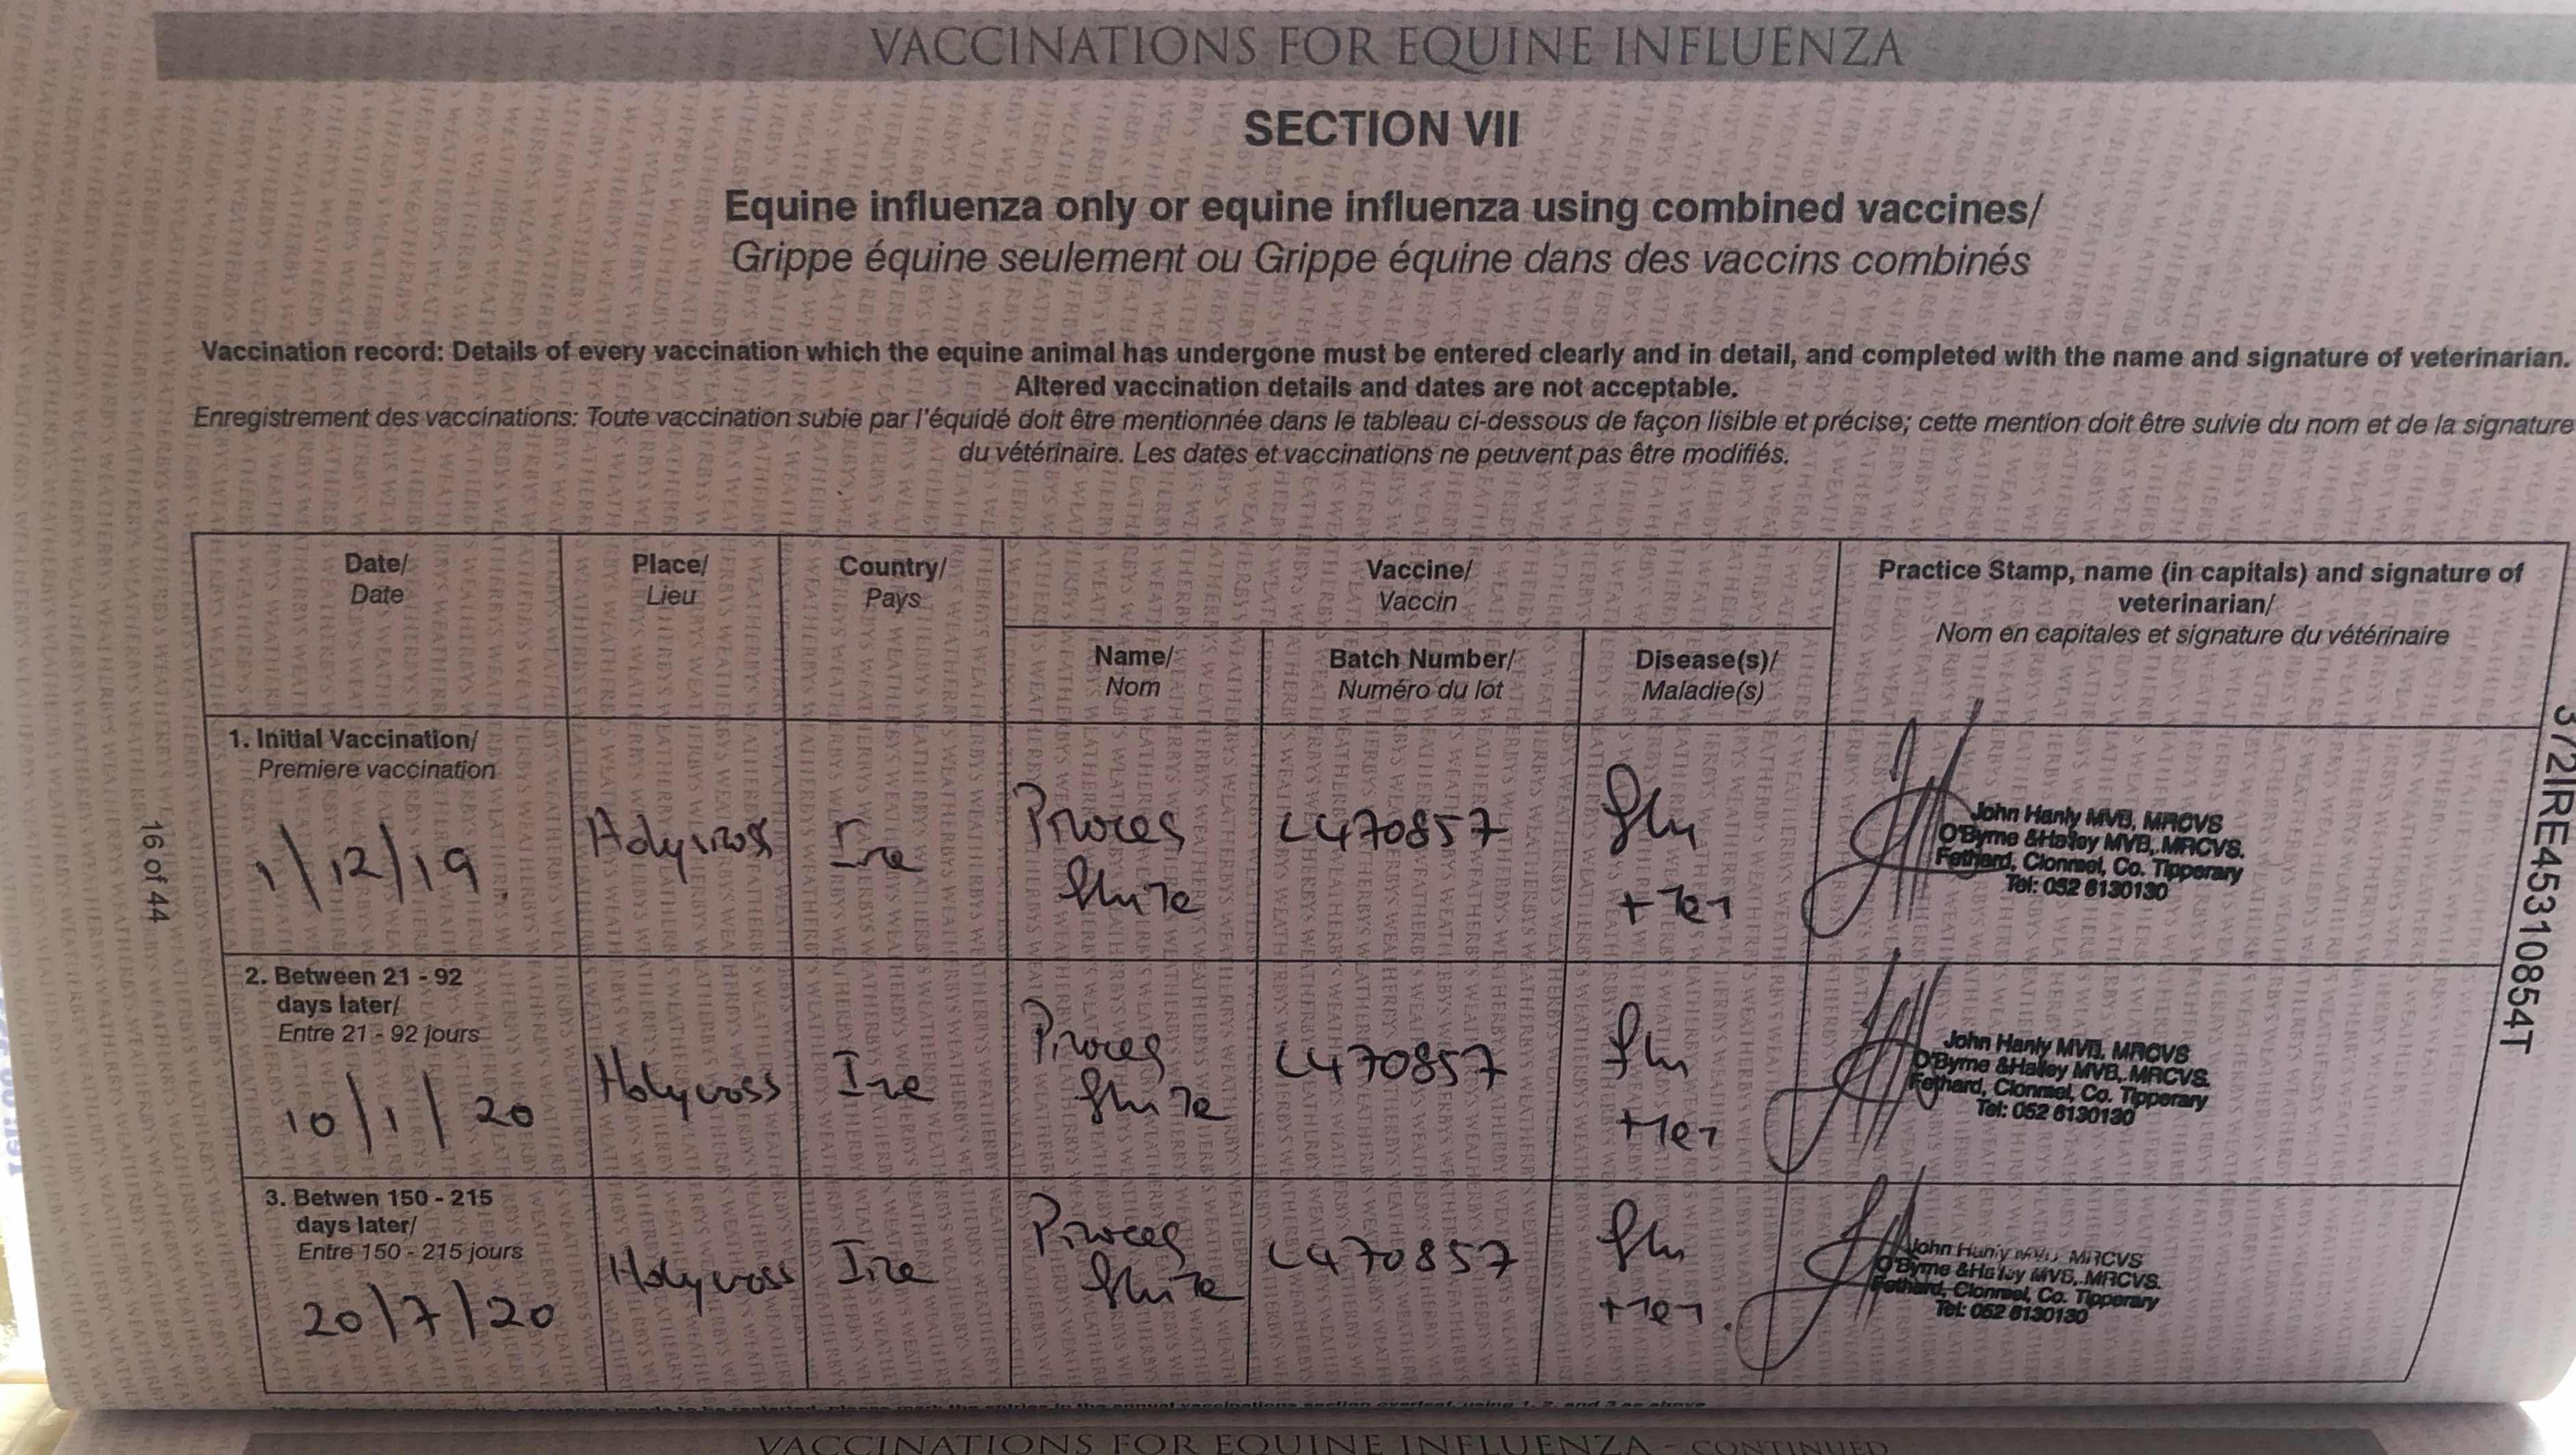 VACCINATIONS FOR EQUINE INFLUENZA
SECTION VII
Equine influenza only or equine influenza using combined vaccines/
Grippe équine seulement ou Grippe équine dans des vaccins combinés
Vaccination record: Details of every vaccination which the equine animal has undergone must be entered clearly and in detail, and completed with the name and signature of veterinarian.
Altered vaccination details and dates are not acceptable.
Enregistrement des vaccinations: Toute vaccination subie par l'équidé doit être mentionnée dans le tableau ci-dessous de façon lisible et précise; cette mention doit être suivie du nom et de la signature
du vétérinaire. Les dates et vaccinations ne peuvent pas être modifiés.
Date/
Date
Place/
Lieu
Country/
Pays
Vaccine/
Vaccin
Practice Stamp, name (in capitals) and signature of
veterinarian/
Nom en capitales et signature du vétérinaire
Name/
Nom
Batch Number/
Numéro du lot
Disease(s)/
Maladie(s)
1. Initial Vaccination/
Premiere vaccination
1/12/19
Holycross
Ire
L470857
Flu
+ Tet
John Hanly MVB, MRCVS
O'Byrne &Halley MVB, MRCVS.
Fethard, Clonmel, Co. Tipperary
Tel: 052 6130130
2. Between 21 - 92
days later/
Entre 21 - 92 jours
10/1/20
Holycross
Ire
L470857
Flu
+ Tet
John Hanly MVB, MRCVS
O'Byrne &Halley MVB, MRCVS.
Fethard, Clonmel, Co. Tipperary
Tel: 052 6130130
3. Betwen 150 - 215
days later/
Entre 150 - 215 jours
20/7/20
Holycross
Ire
L470857
Flu
+ Tet.
John Hanly MVB, MRCVS
O'Byrne &Halley MVB, MRCVS.
Fethard, Clonmel, Co. Tipperary
Tel: 052 6130130
16 of 44
372IRE45310854T
VACCINATIONS FOR EQUINE INFLUENZA - CONTINUED